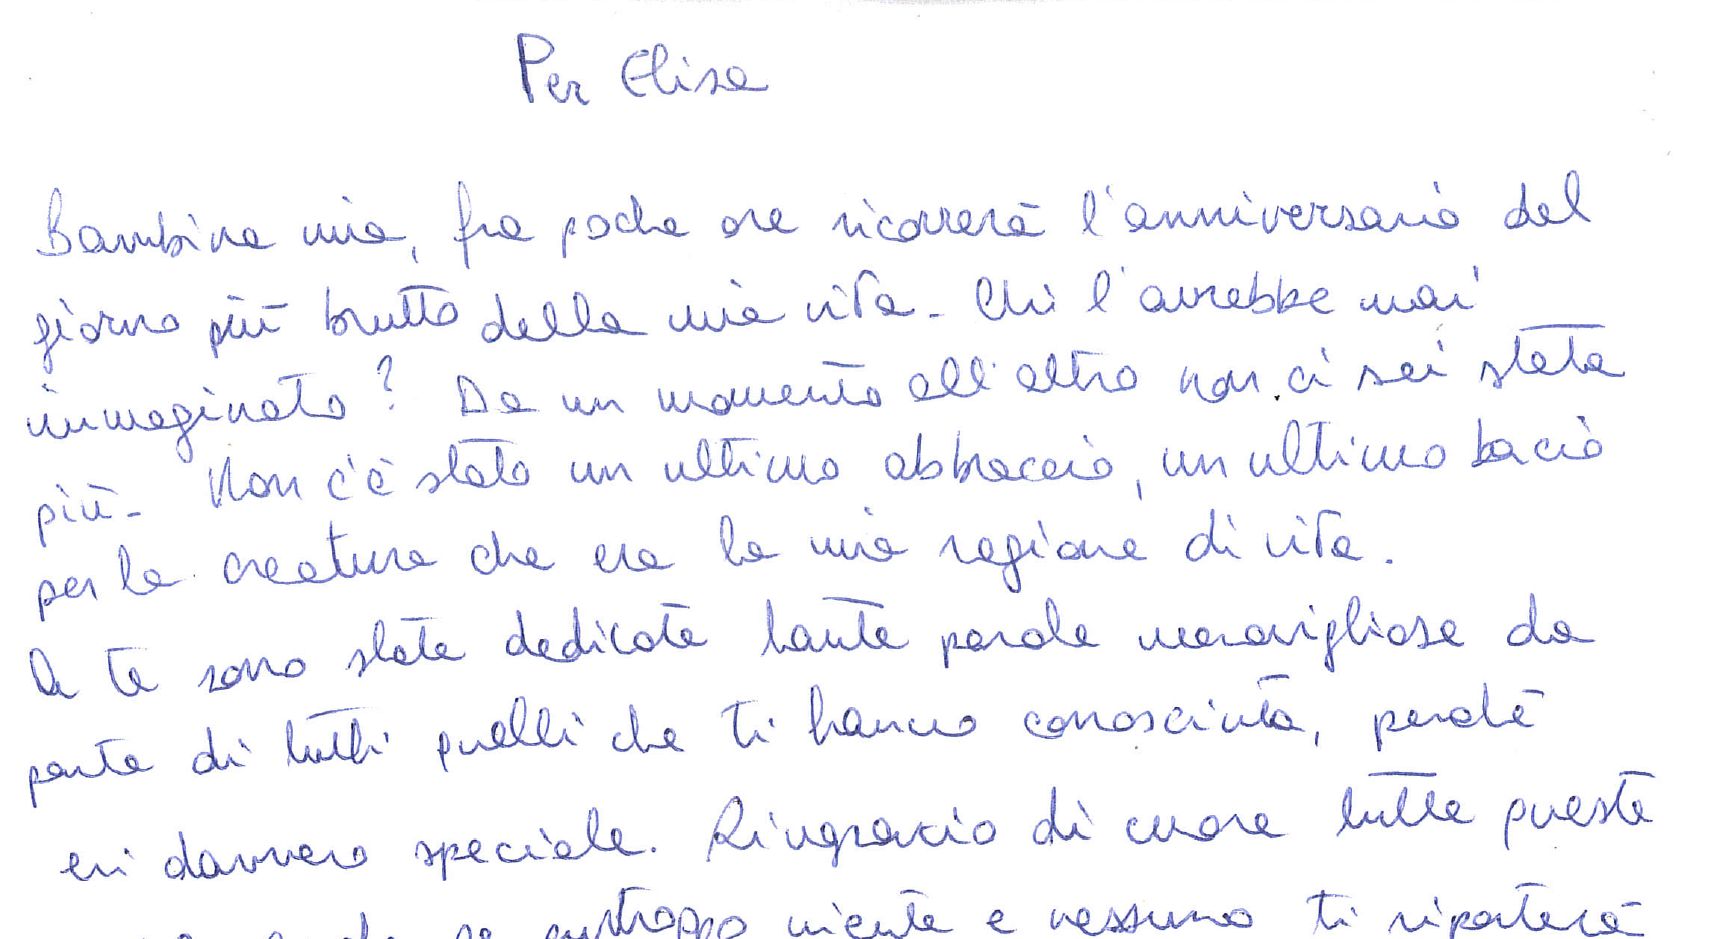 Per Elisa
Bambina mia, fra poche ore ricorrerà l'anniversario del
giorno più brutto della mia vita - Chi l'avrebbe mai
immaginato? Da un momento all'altro non ci sei stata
più - Non c'è stato un ultimo abbraccio, un ultimo bacio
per la creatura che era la mia ragione di vita.
A te sono state dedicate tante parole meravigliose da
parte di tutti quelli che ti hanno conosciuta, perché
eri davvero speciale. Ringrazio di cuore tutte queste
se purtroppo niente e nessuno ti riporterà